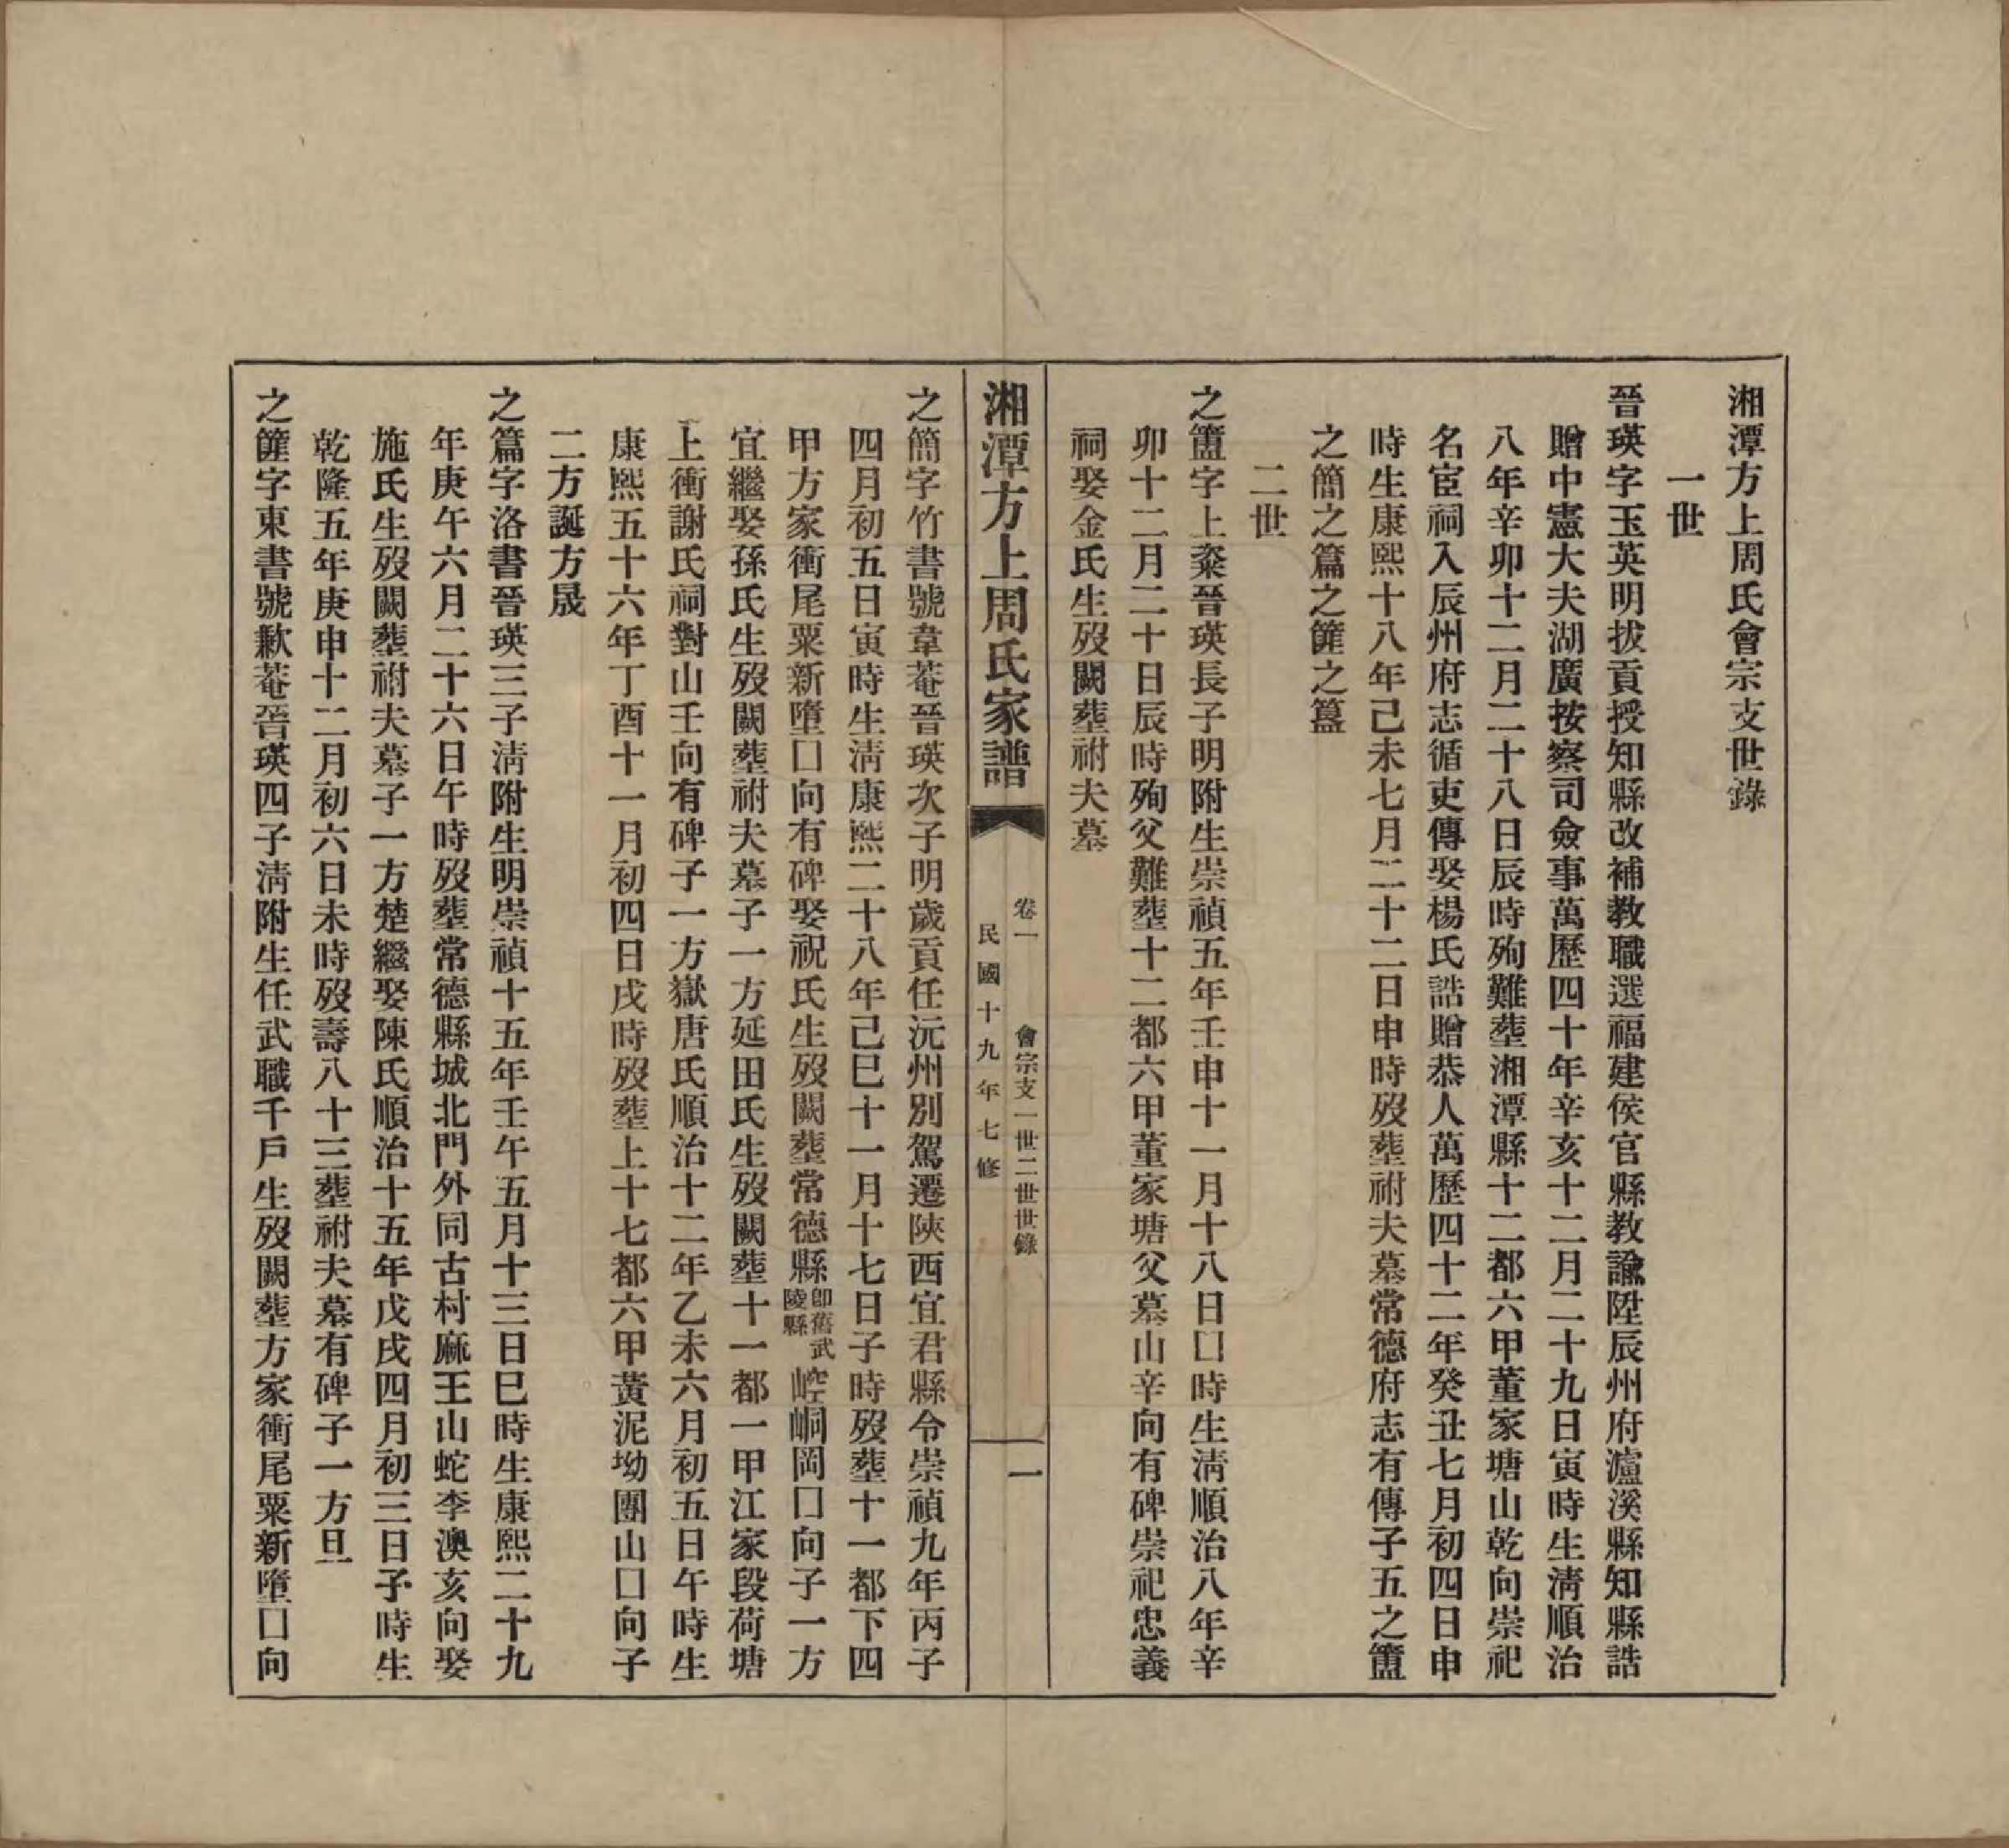 湘潭方上周氏會宗支世錄
一世
晉瑛字玉英明拔貢授知縣改補教職選福建侯官縣教諭陞辰州府瀘溪縣知縣誥
贈中憲大夫湖廣按察司僉事萬歷四十年辛亥十二月二十九日寅時生淸順治
八年辛卯十二月二十八日辰時殉難葬湘潭縣十二都六甲董家塘山乾向崇祀
名宦祠入辰州府志循吏傳娶楊氏誥贈恭人萬歷四十二年癸丑七月初四日申
時生康熙十八年己未七月二十二日申時歿葬祔夫墓常德府志有傳子五之簠
之簡之篇之䈽之簋
二世
之簠字上粢晉瑛長子明附生崇禎五年壬申十一月十八日囗時生淸順治八年辛
卯十二月二十日辰時殉父難葬十二都六甲董家塘父墓山辛向有碑崇祀忠義
祠娶金氏生歿闕葬祔夫墓
湘潭方上周氏家譜
卷一 會宗支一世二世世錄 一
民國十九年七修
之簡字竹書號韋菴晉瑛次子明歲貢任沅州別駕遷陝西宜君縣令崇禎九年丙子
四月初五日寅時生淸康熙二十八年己巳十一月十七日子時歿葬十一都下四
甲方家衝尾粟新墮囗向有碑娶祝氏生歿闕葬常德縣卽舊武陵縣崆峒岡囗向子一方
宜繼娶孫氏生歿闕葬祔夫墓子一方延田氏生歿闕葬十一都一甲江家段荷塘
上衝謝氏祠對山壬向有碑子一方嶽唐氏順治十二年乙未六月初五日午時生
康熙五十六年丁酉十一月初四日戌時歿葬上十七都六甲黃泥坳團山囗向子
二方誕方晟
之篇字洛書晉瑛三子淸附生明崇禎十五年壬午五月十三日巳時生康熙二十九
年庚午六月二十六日午時歿葬常德縣城北門外同古村麻王山蛇李澳亥向娶
施氏生歿闕葬祔夫墓子一方楚繼娶陳氏順治十五年戊戌四月初三日子時生
乾隆五年庚申十二月初六日未時歿壽八十三葬祔夫墓有碑子一方旦
之䈽字東書號歉菴晉瑛四子淸附生任武職千戶生歿闕葬方家衝尾粟新墮囗向